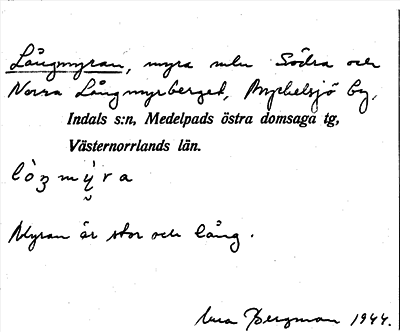 Långmyran, myra mln Södra och
Norra Långmyrberget, Myckelsjö by,
Indals s:n, Medelpads östra domsaga tg,
Västernorrlands län.
lòŋmy̆́ra
Myran är stor och lång.
Vera Bergman 1944.